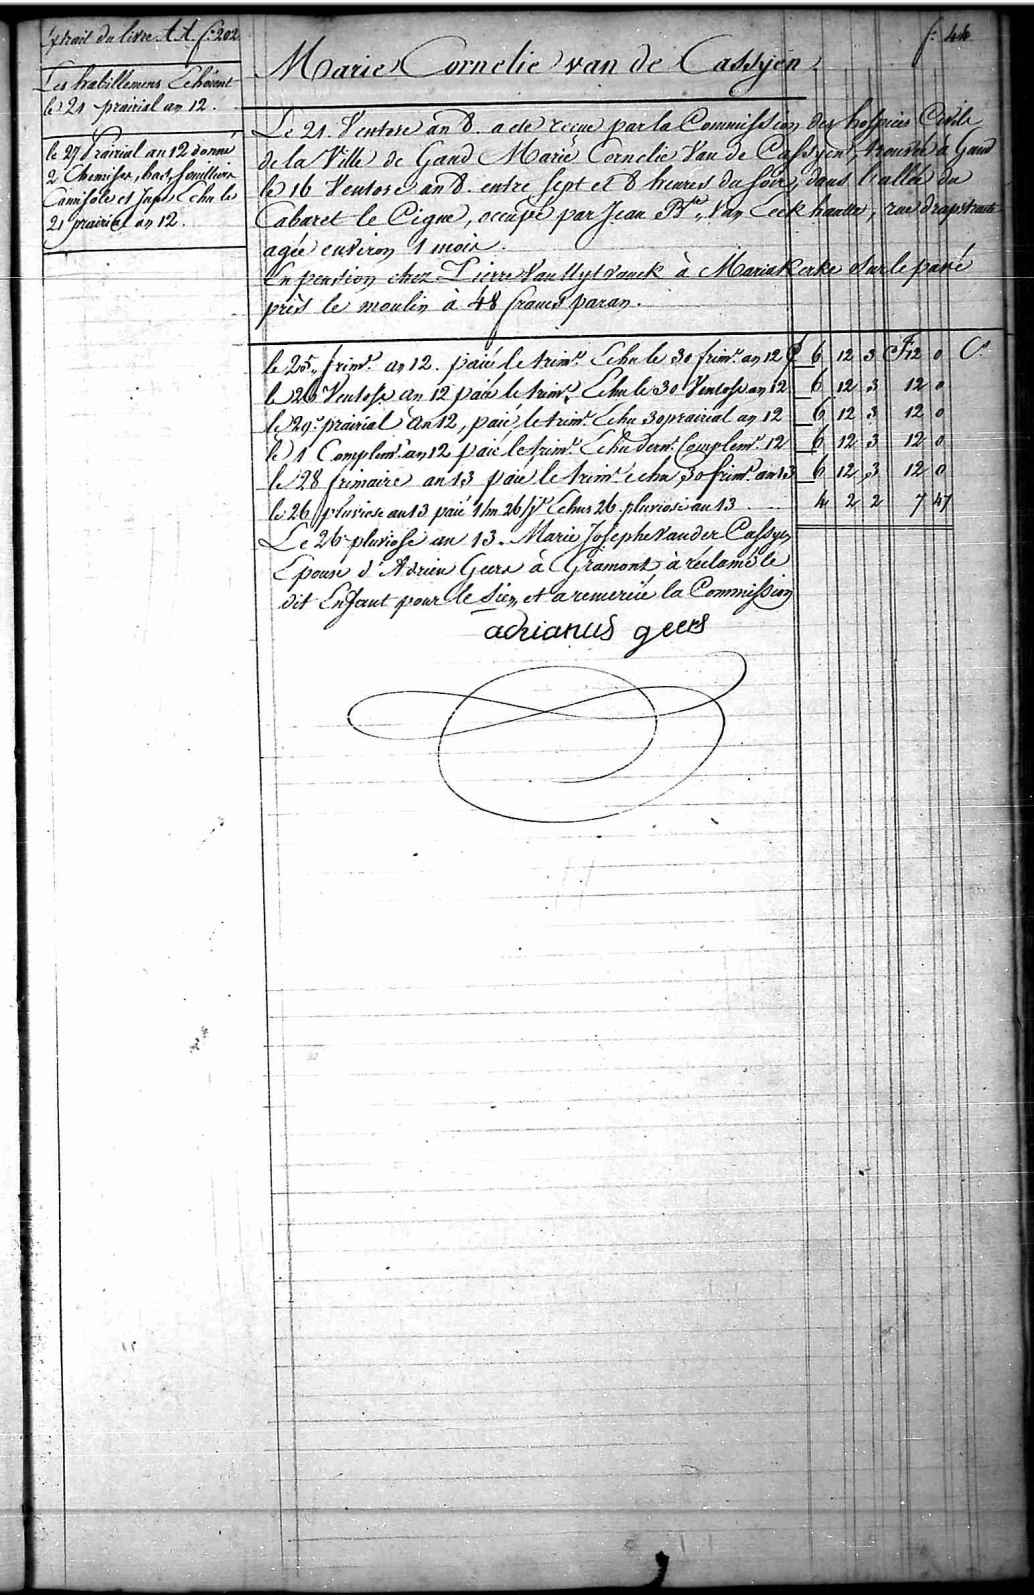 Extrait du livre A.A. f: 202
f: 44
Les habillemens Echoient
le 21 prairial an 12.
le 27 Prairial an 12 donné
2 Chemises, bas,
Camisole et Jupes Echu le
21 prairial an 12.
Marie Cornelie van de Cassÿen
Le 21. Ventose an 8. a eté recue par la Commission des hospices Civils
de la Ville de Gand Marie Cornelie Van de Cassyen, trouvée à Gand
le 16 Ventose an 8. entre sept et 8 heures du soir, dans l'allée du
Cabaret le Cigne, occupé par Jean Bte. Van Eeckhaute, rue drapstraete
agée environ 1 mois.
En pension chez Pierre Van Uytvanck à Mariakerke sur le pavé
près le moulin à 48 francs par an.
le 25 frimre. an 12. paié le trimre. Echu le 30 frimre. an 12 £ 6 12 3 F 12 0 Cs
le 26 Ventose an 12 paié le trimre. Echu le 30 Ventose an 12 6 12 3 12 0
le 29 prairial an 12, paié le trimre. Echu 30 prairial an 12 6 12 3 12 0
le 1 Complemre. an 12 paié le trimre. Echu dernr. Complemre. 12 6 12 3 12 0
le 28 frimaire an 13 paié le trimre. echu 30 frimre. an 13 6 12 3 12 0
le 26 pluviose an 13 paié 1 m 26 jrs. Echus 26 pluviose an 13 4 2 2 7 47
Le 26 pluviose an 13. Marie Josephe Vander Cassyen
Epouse d'Adrien Geers à Gramont à réclamé le
dit Enfant pour le Sien, et a remercié la Commission
adrianus geers